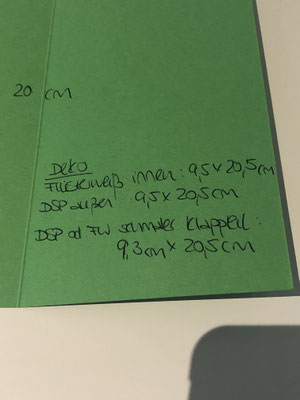 20 cm
Deko
Flüsterweiß innen: 9,5 x 20,5cm
DSP außen 9,5 x 20,5cm
DSP od FW schmaler Klappteil:
9,3cm x 20,5cm